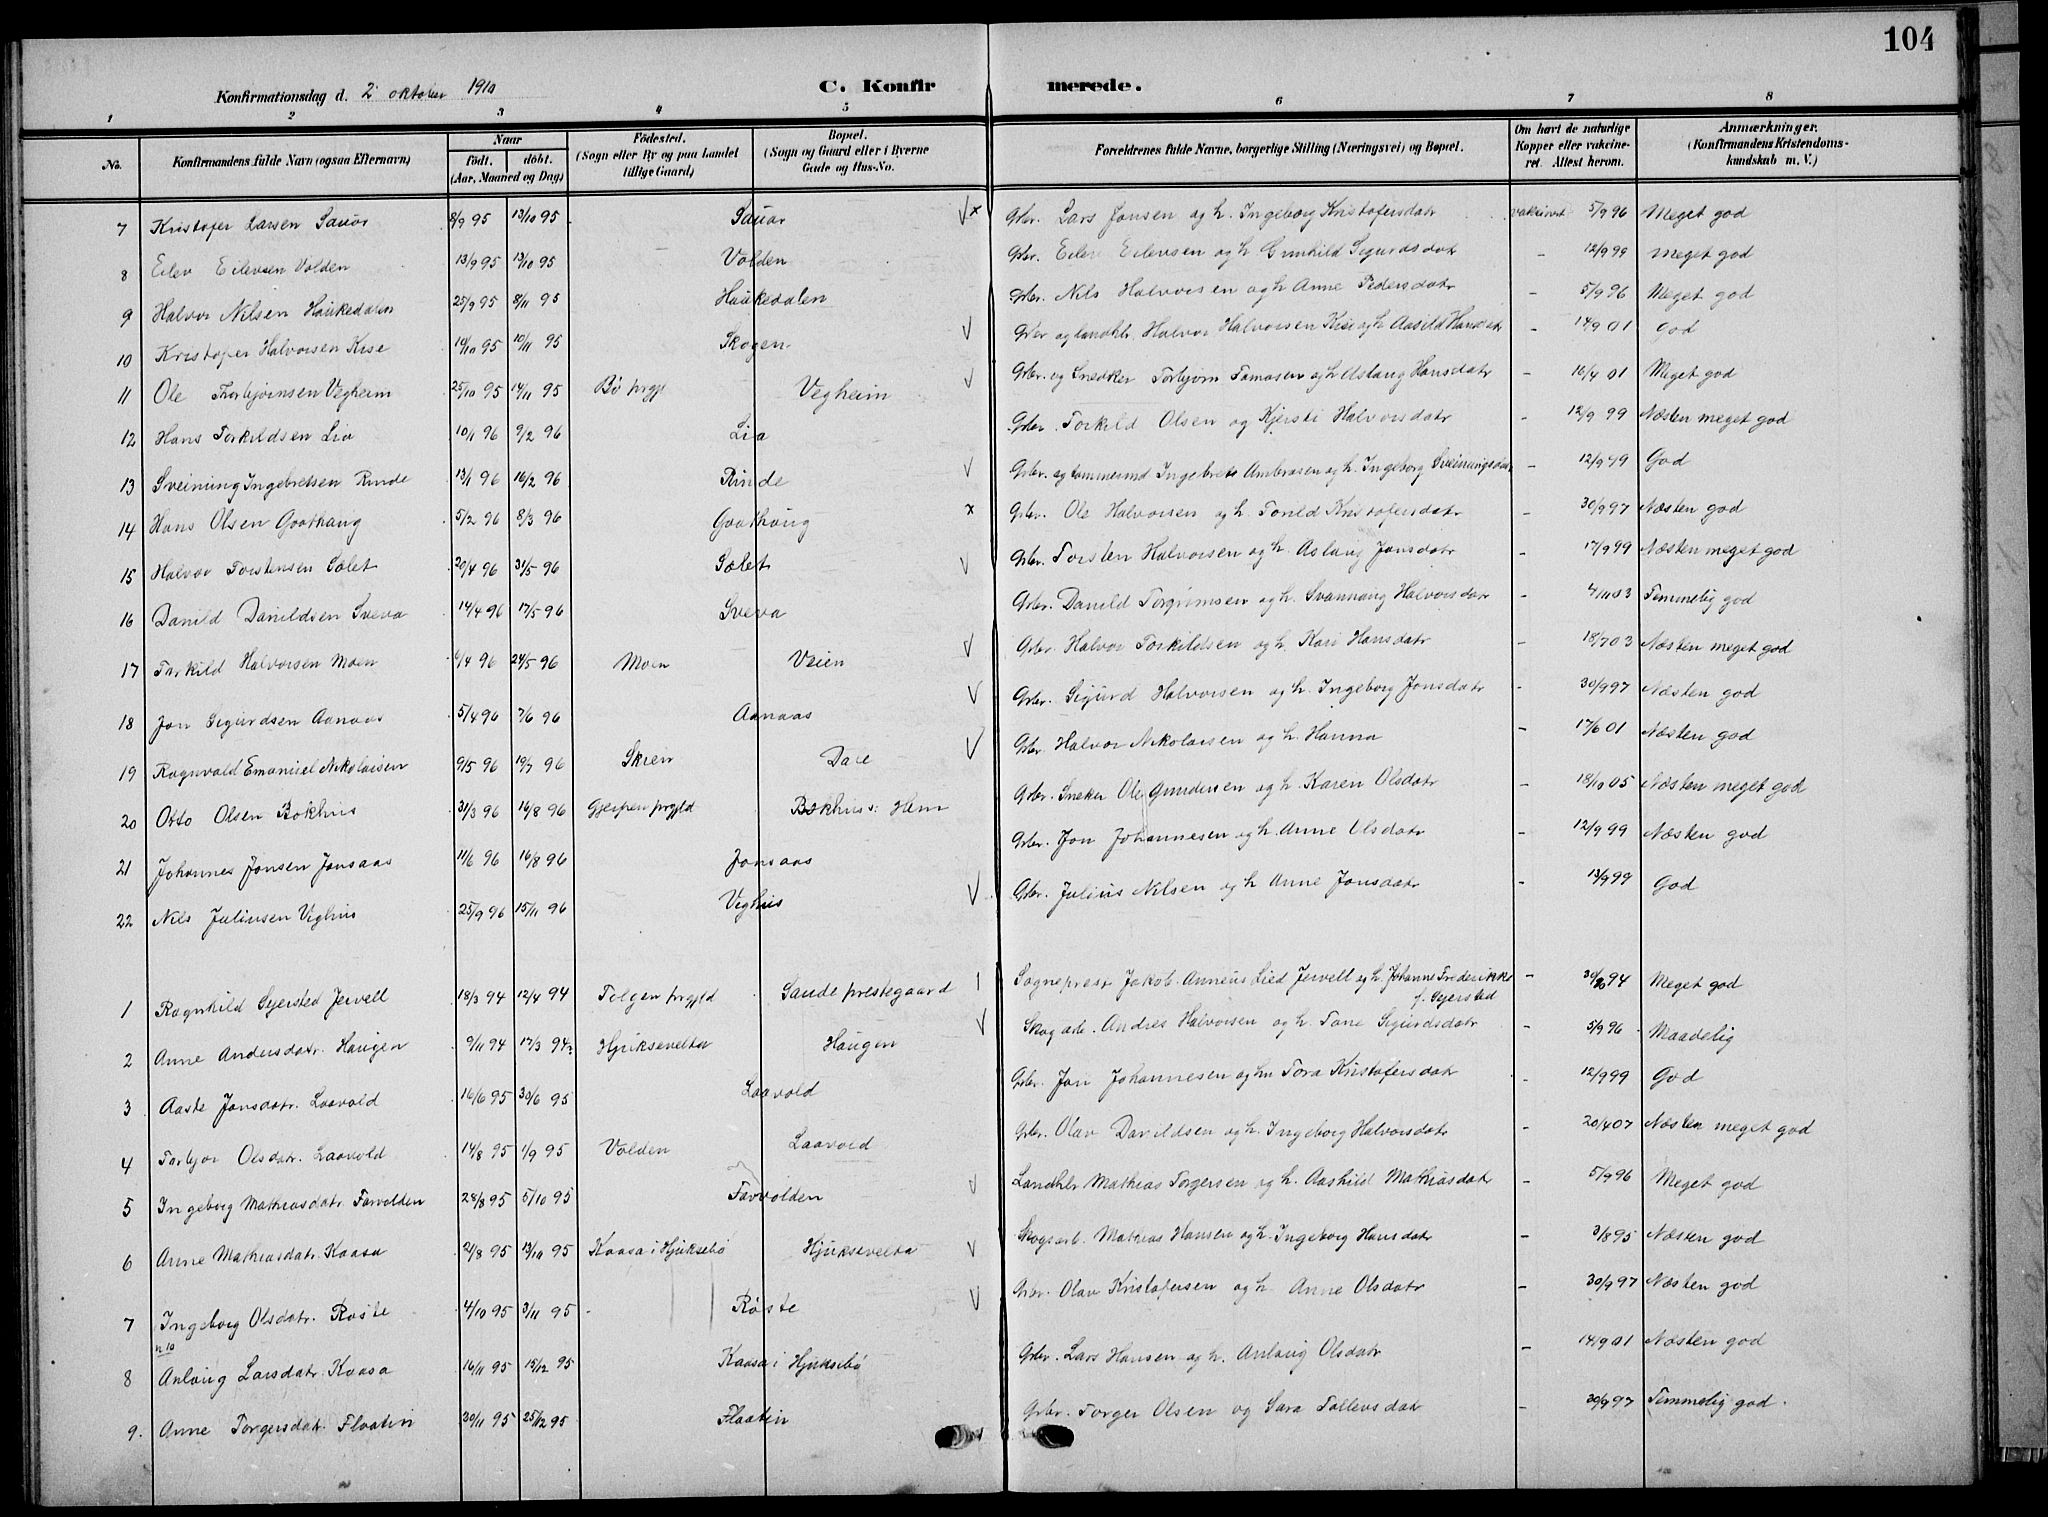 104
Konfirmationsdag d. 2 oktober 1910 C. Konfirmerede.
1 2 3 4 5 6 7 8
No. Konfirmandens fulde Navn (ogsaa Efternavn) Naar födt. döbt. (Aar, Maaned og Dag) Födested. (Sogn eller By og paa Landet tillige Gaard) Bopæl. (Sogn og Gaard eller i Byerne Gade og Hus-No. Forældrenes fulde Navne, borgerlige Stilling (Næringsvei) og Bopæl. Om havt de naturlige Kopper eller vakcineret. Attest herom. Anmærkninger. (Konfirmandens Kristendomskundskab m. V.)
7 Kristofer Larsen Sauar 8/9 95 13/10 95 Sauar Grbr. Lars Jonsen og h. Ingeborg Kristofersdatr vaksinert 5/9 96 Meget god
8 Eilev Eilevsen Volden 13/9 95 13/10 95 Volden Grbr. Eilev Eilevsen og h Gunhild Sigurdsdatr - 12/9 99 Meget god
9 Halvor Nilsen Haukedalen 25/9 95 8/11 95 Haukedalen Grbr. Nils Halvorsen og h Anne Pedersdatr - 5/9 96 Meget god
10 Kristofer Halvorsen Kise 14/10 95 10/11 95 Skogen Grbr og landhlr. Halvor Halvorsen Kise og h Aasild Hansdatr - 14/9 01 God
11 Ole Thorbjørnsen Vegheim 25/10 95 14/11 95 Bø prgjl Vegheim Grbr. og Snedker Torbjørn Tomasen og h Aslaug Hansdatr - 16/4 01 Meget god
12 Hans Torkildsen Lia 10/1 96 9/2 96 Lia Grbr. Torkild Olsen og Kjersti Halvorsdatr - 12/9 99 Næsten meget god
13 Sveinung Ingebretsen Rinde 13/1 96 16/2 96 Rinde Grbr. og tømmermd Ingebret Ambrosen og h. Ingeborg Sveinungsdatr - 12/9 99 God
14 Hans Olsen Goathaug 5/2 96 8/3 96 Goathaug Grbr. Ole Halvorsen og h. Torild Kristofersdatr - 30/9 97 Næsten god
15 Halvor Torstensen Sælet 20/4 96 31/5 96 Sælet Grbr. Torsten Halvorsen og h. Aslaug Jonsdatr - 17/9 99 Næsten meget god
16 Danild Danildsen Sveva 14/4 96 17/5 96 Sveva Grbr. Danild Torgrimsen og h. Svannaug Halvorsdatr - 03 Temmelig god
17 Torkild Halvorsen Moen /4 96 24/5 96 Moen Veien Grbr. Halvor Torkildsen og h. Kari Hansdatr - 18/7 03 Næsten meget god
18 Jon Sigurdsen Aanaas 5/4 96 7/6 96 Aanaas Grbr. Sigurd Halvorsen og h. Ingeborg Jonsdatr - 30/9 97 Næsten god
19 Ragnvald Emanuel Nikolaisen 9/5 96 19/7 96 Skien Dale Grbr Halvor Nikolaisen og h. Hanna - 17/6 01 Næsten god
20 Otto Olsen Bokhus 31/3 96 16/8 96 Gjerpen prgjld Bokhus: Hem Grbr. Sneker Ole Gundersen og h. Karen Olsdatr - 18/10 05 Næsten meget god
21 Johannes Jonsen Jonsaas 11/6 96 16/8 96 Jonsaas Grbr. Jon Johannesen og h. Anne Olsdatr - 12/9 99 Næsten god
22 Nils Juliusen Veghus 25/9 96 15/11 96 Veghus Grbr. Julius Nilsen og h Anne Jonsdatr - 13/9 99 God
1 Ragnhild Gjersted Jervell 18/3 94 12/4 94 Tolgen prgjld Saude prestegaard Sogneprest Jakob Anneus Lied Jervell og h. Johanne Frederikke f. Gjersted - 30/10 94 Meget god
2 Anne Andersdatr. Haugen 9/11 94 17/3 94 Hjuksevelta Haugen Skogarb. Andres Halvorsen og h. Tone Sigurdsdatr - 5/9 96 Maadelig
3 Aaste Jonsdatr. Laavold 16/6 95 30/6 95 Laavold Grbr. Jon Johannesen og hu Tora Kristofersdatr - 12/9 99 God
4 Torbjor Olsdatr. Laavold 14/8 95 1/9 95 Volden Laavold Grbr. Olav Davildsen og h. Ingeborg Halvorsdatr - 20/4 07 Næsten meget god
5 Ingeborg Mathiasdatr Farvolden 28/8 95 5/10 95 Farvolden Landhlr Mathias Torgersen og h. Aashild Mathiasdatr - 5/9 96 Meget god
6 Anne Mathiasdatr. Kaasa 21/8 95 13/10 95 Kaasa i Hjuksebø Hjuksevelta Skogsarb. Mathias Hansen og h. Ingeborg Hansdatr - 3/8 95 Næsten god
7 Ingeborg Olsdatr. Røste 4/10 95 3/11 95 Røste Grbr. Olav Kristofersen og h Anne Olsdatr - 30/9 97 Næsten god
n 10
8 Anlaug Larsdatr Kaasa 16/11 95 15/12 95 Kaasa i Hjuksebø Grbr. Lars Hansen og h. Anlaug Olsdatr - 14/9 01 Næsten god
9. Anne Torgersdatr Flaatin 30/11 95 25/12 95 Flaatin Grbr. Torger Olsen og Sara Tollevsdatr - 30/9 97 Temmelig god.